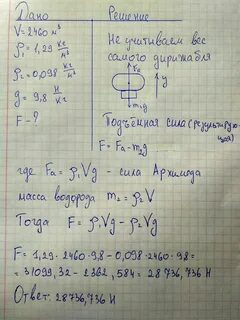 Дано
Решение
V = 2460 м³
ρ₁ = 1,29 кг/м³
ρ₂ = 0,098 кг/м³
g = 9,8 Н/кг
F - ?
Не учитываем вес
самого дирижабля
Fa
y
m₂g
Подъёмная сила (результирующая)
F = Fa - m₂g
где Fa = ρ₁Vg - сила Архимеда
масса водорода m₂ = ρ₂V
Тогда F = ρ₁Vg - ρ₂Vg
F = 1,29 · 2460 · 9,8 - 0,098 · 2460 · 9,8 =
= 31099,32 - 2362,584 = 28736,736 Н
Ответ: 28736,736 Н